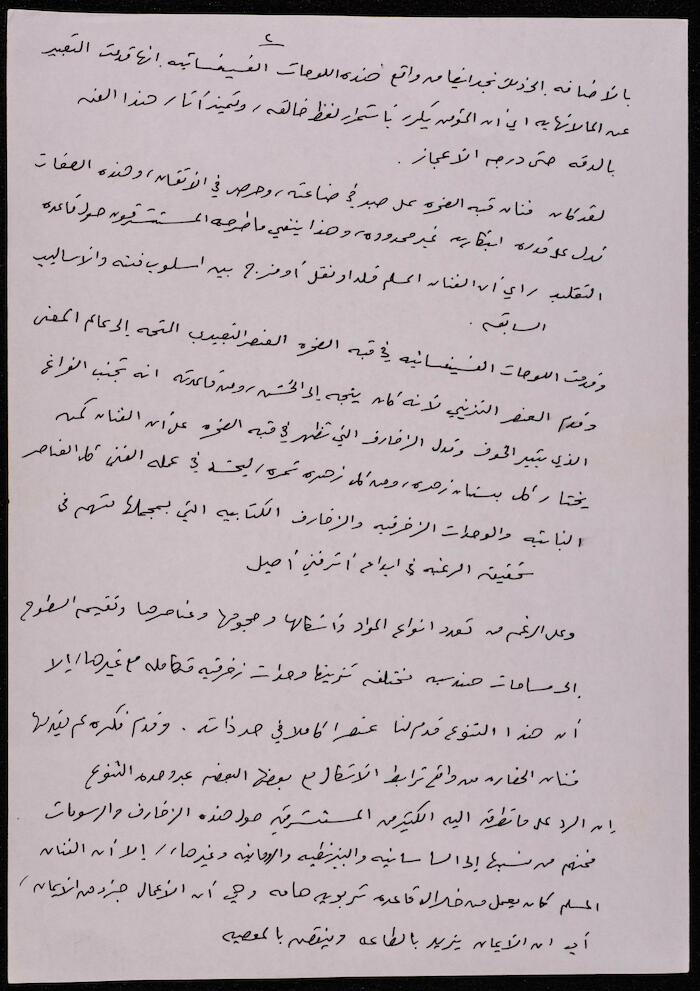 ٢
بالاضافه الى ذلك نجد ايضا من واقع هذه اللوحات الفسيفسائيه انها قدمت التعبير
عن المالانهايه اي أن المؤمن يكرر باستمرار لفظ خالقه، وتميز أثار هذا الفن
بالدقه حتى درجه الاعجاز .
لقد كان فنان قبه الصخره على صبر في صناعته، وحرص في الاتقان، وهذه الصفات
تدل على قدره ابتكاريه غير محدوده، وهذا ينفي ما طرحه المستشرقون حول قاعده
التقليد / اي أن الفنان المسلم قلد او نقل أو مزج بين اسلوب فنه والاساليب
السابقه .
وقدمت اللوحات الفسيفسائيه في قبه الصخره العنصر التجريدي المتجه إلى عالم المعنى
وقدم العنصر التزييني لأنه كان يتجه إلى الحس، ومن قاعدته انه تجنب الفراغ
الذي يثير الخوف وتدل الزخارف التي تظهر في قبه الصخره على أن الفنان كمن
يختار كل بستان زهره، ومن كل زهره ثمره، ليحشد في عمله الفني كل العناصر
النباتيه والوحدات الزخرفيه والزخارف الكتابيه التي بمجملها تسهم في
تحقيق الرغبه في ابداع أثر فني أصيل
وعلى الرغم من تعدد انواع المواد وأشكالها وحجومها وعناصرها وتقسيم السطوح
إلى مساحات هندسيه مختلفه تزينها وحدات زخرفيه متكامله مع غيرها، إلا
أن هذا التنوع قدم لنا عنصرا كاملا في حد ذاته . وقدم فكره لم يقدمها
فنان الحضاره من واقع ترابط الأشكال مع بعضها البعض عبر وحده التنوع
إن الرد على ما تطرق اليه الكثير من المستشرقين حول هذه الزخارف والرسومات
فمنهم من نسبها إلى الساسانيه والبيزنطيه والرومانيه وغيرها، إلا أن الفنان
المسلم كان يعمل من خلال قاعده تربويه هامه وهي أن الأعمال جزء من الايمان،
أي ان الايمان يزيد بالطاعه وينقص بالمعصيه